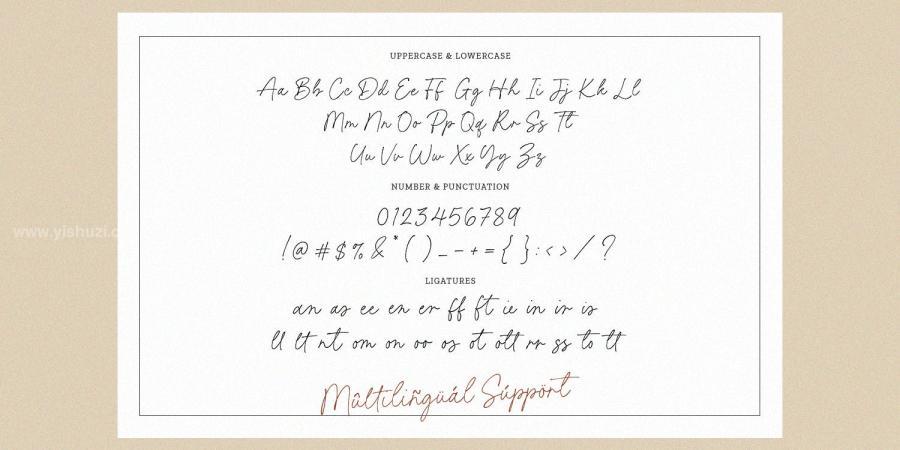 UPPERCASE & LOWERCASE
Aa Bb Cc Dd Ee Ff Gg Hh Ii Jj Kk Ll
Mm Nn Oo Pp Qq Rr Ss Tt
Uu Vv Ww Xx Yy Zz
NUMBER & PUNCTUATION
0123456789
www.yishuzi.c
!@#$%&*()_-+={}:<>/?
LIGATURES
an as ee en er ff ft ie in ir is
ll lt nt om on oo os ot ott rr ss to tt
Múltilingüál Súppört